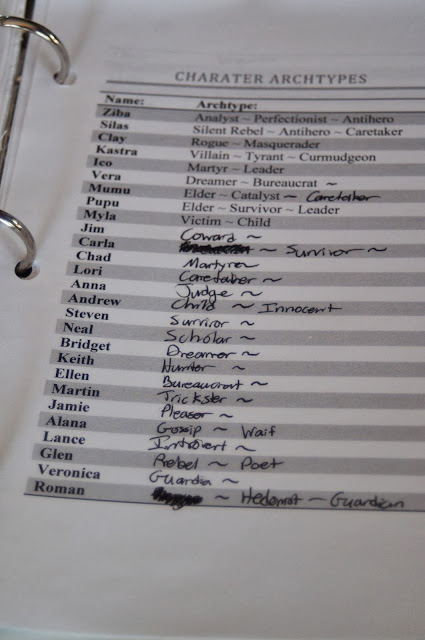 CHARATER ARCHTYPES
Name: Archtype:
Ziba Analyst ~ Perfectionist ~ Antihero
Silas Silent Rebel ~ Antihero ~ Caretaker
Clay Rogue ~ Masquerader
Kastra Villain ~ Tyrant ~ Curmudgeon
Ieo Martyr ~ Leader
Vera Dreamer ~ Bureaucrat ~
Mumu Elder ~ Catalyst ~ Caretaker
Pupu Elder ~ Survivor ~ Leader
Myla Victim ~ Child
Jim Coward ~
Carla ~ Survivor ~
Chad Martyr ~
Lori Caretaker ~
Anna Judge ~
Andrew Child ~ Innocent
Steven Survivor ~
Neal Scholar ~
Bridget Dreamer ~
Keith Hunter ~
Ellen Bureaucrat ~
Martin Trickster ~
Jamie Pleaser ~
Alana Gossip ~ Waif
Lance Introvert ~
Glen Rebel ~ Poet
Veronica Guardian ~
Roman ~ Hedonist ~ Guardian